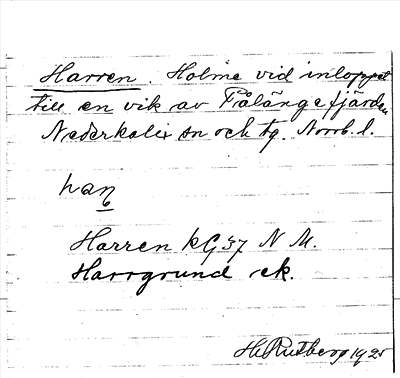 Harren. Holme vid inloppet
till en vik av Frålängefjärden
Nederkalix sn och tg. Norrb. l.
han
Harren kG37 N M.
Harrgrund ek.
H. Rutberg 1925